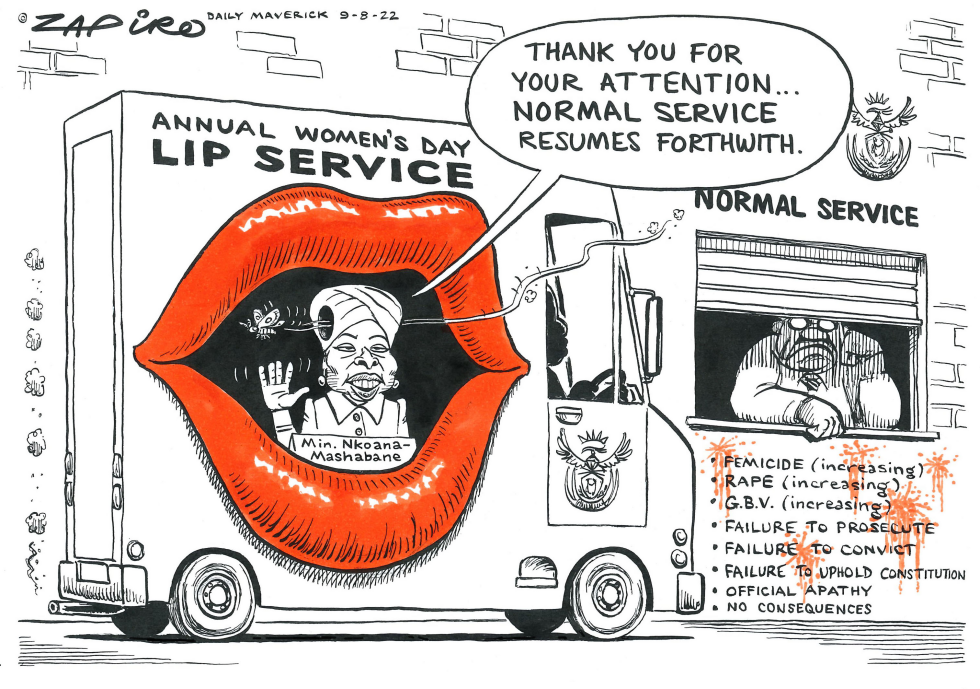 © ZAPIRO DAILY MAVERICK 9-8-22
THANK YOU FOR
YOUR ATTENTION...
NORMAL SERVICE
RESUMES FORTHWITH.
ANNUAL WOMEN'S DAY
LIP SERVICE
Min. Nkoana-
Mashabane
NORMAL SERVICE
• FEMICIDE (increasing)
• RAPE (increasing)
• G.B.V. (increasing)
• FAILURE TO PROSECUTE
• FAILURE TO CONVICT
• FAILURE TO UPHOLD CONSTITUTION
• OFFICIAL APATHY
• NO CONSEQUENCES